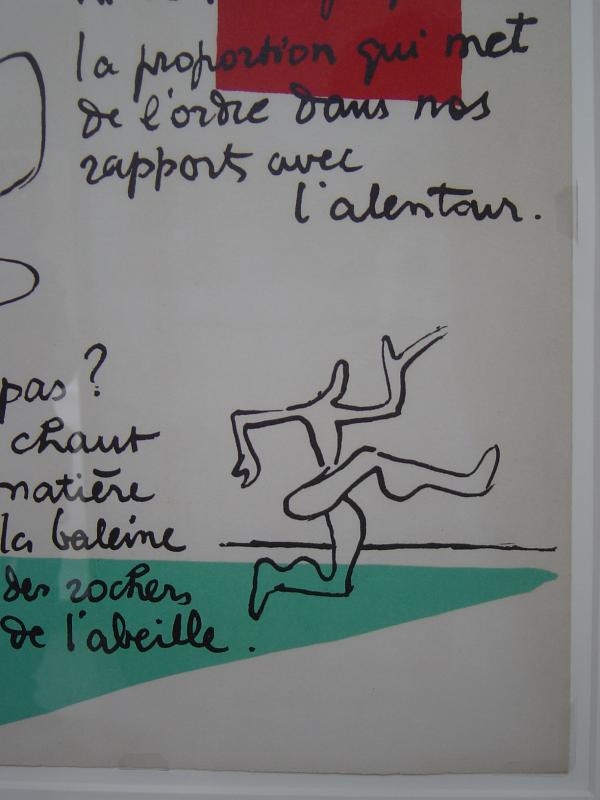 la proportion qui met
de l'ordre dans nos
rapports avec
l'alentour.
pas ?
chaut
matière
la baleine
des rochers
de l'abeille.